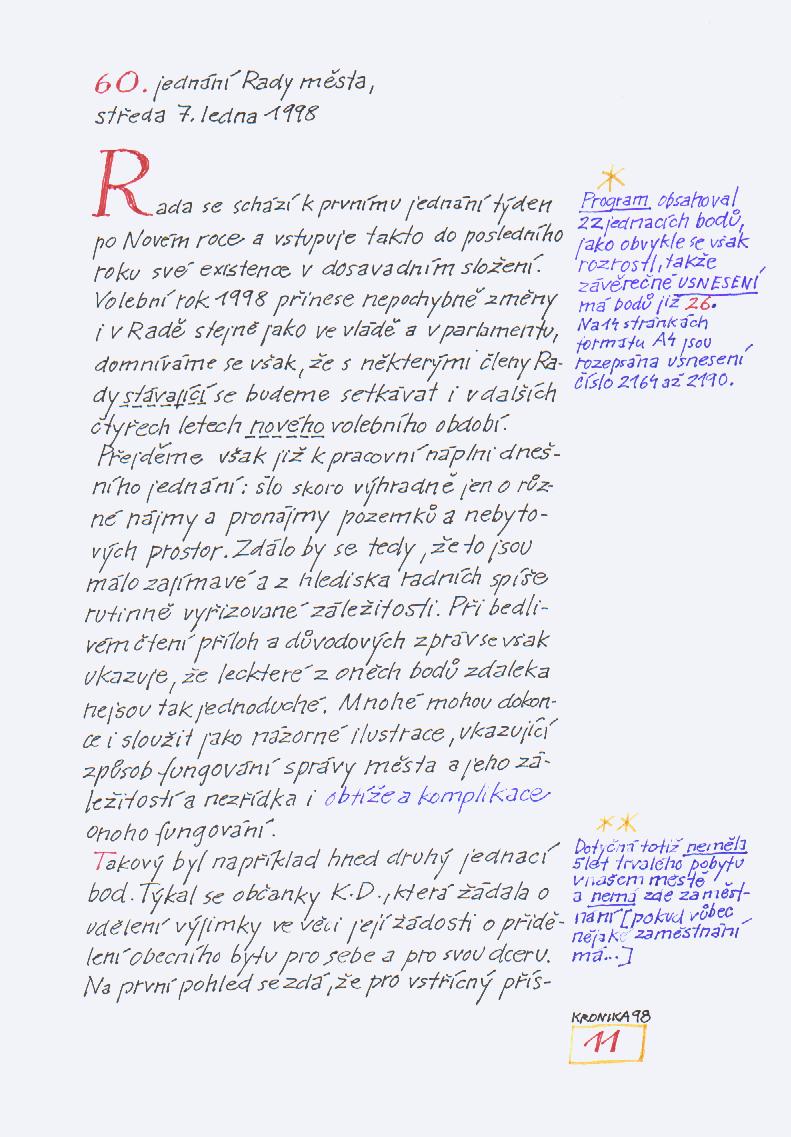 60. jednání Rady města,
středa 7. ledna 1998
Rada se schází k prvnímu jednání týden
po Novém roce a vstupuje takto do posledního
roku své existence v dosavadním složení.
Volební rok 1998 přinese nepochybně změny
i v Radě stejně jako ve vládě a v parlamentu,
domníváme se však, že s některými členy Ra-
dy stávající se budeme setkávat i v dalších
čtyřech letech nového volebního období.
Přejděme však již k pracovní náplni dneš-
ního jednání: šlo skoro výhradně jen o růz-
né nájmy a pronájmy pozemků a nebyto-
vých prostor. Zdálo by se tedy, že to jsou
málo zajímavé a z hlediska radních spíše
rutinně vyřizované záležitosti. Při bedli-
vém čtení příloh a důvodových zpráv se však
ukazuje, že leckteré z oněch bodů zdaleka
nejsou tak jednoduché. Mnohé mohou dokon-
ce i sloužit jako názorné ilustrace, ukazující
způsob fungování správy města a jeho zá-
ležitostí a nezřídka i obtíže a komplikace
onoho fungování.
Takový byl například hned druhý jednací
bod. Týkal se občanky K.D., která žádala o
udělení výjimky ve věci její žádosti o přidě-
lení obecního bytu pro sebe a pro svou dceru.
Na první pohled se zdá, že pro vstřícný přís-
*
Program obsahoval
22 jednacích bodů,
jako obvykle se však
rozrostl, takže
závěrečné USNESENÍ
má bodů již 26.
Na 14 stránkách
formátu A4 jsou
rozepsána usnesení
číslo 2164 až 2190.
**
Dotyčná totiž neměla
5 let trvalého pobytu
v našem městě
a nemá zde zaměst-
nání [pokud vůbec
nějaké zaměstnání
má...]
KRONIKA 98
11